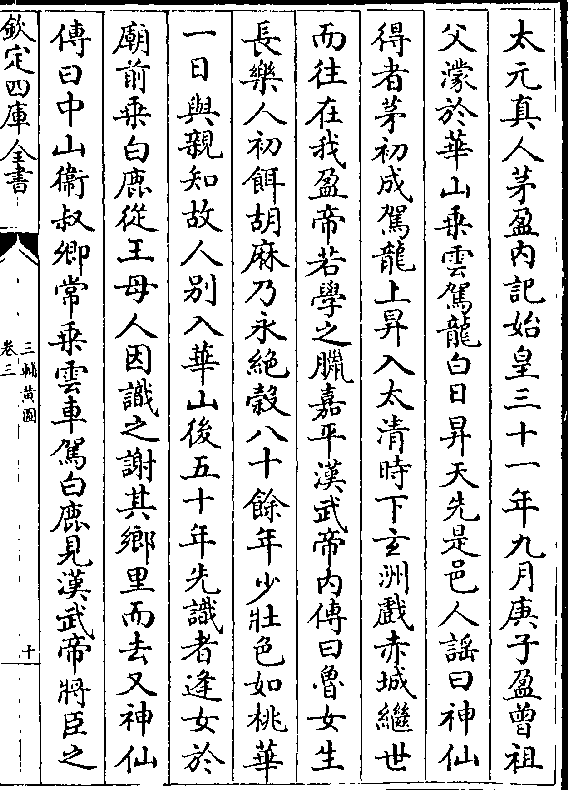 太元真人茅盈内記始皇三十一年九月庚子盈曽祖
父濛於華山乗雲駕龍白日昇天先是邑人謡曰神仙
得者茅初成駕龍上昇入太清時下𤣥洲戲赤城繼世
而往在我盈帝若學之臘嘉平漢武帝内傳曰魯女生
長樂人初餌胡麻乃永絶榖八十餘年少壯色如桃華
一日與親知故人别入華山後五十年先識者逢女於
廟前乗白鹿從王母人因識之謝其鄉里而去又神仙
傳曰中山衛叔卿常乗雲車駕白鹿見漢武帝將臣之
欽定四庫全書
三輔黄圖
卷三
十